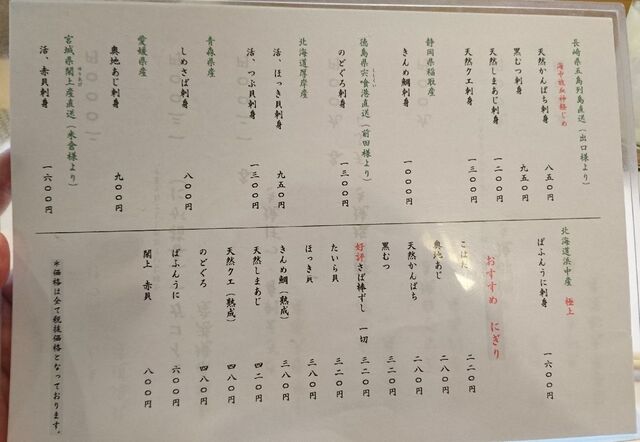 長崎県五島列島直送（出口様より）
海中放血神経じめ
天然かんぱち刺身 八五〇円
黒むつ刺身 九五〇円
天然しまあじ刺身 一二〇〇円
天然クエ刺身 一三〇〇円
静岡県稲取産
きんめ鯛刺身 一〇〇〇円
徳島県宍喰港直送（前田様より）
のどぐろ刺身 一三〇〇円
北海道厚岸産
活、ほっき貝刺身 九五〇円
活、つぶ貝刺身 一三〇〇円
青森県産
しめさば刺身 八〇〇円
愛媛県産
奥地あじ刺身 九〇〇円
宮城県閖上産直送（米倉様より）
活、赤貝刺身 一六〇〇円
北海道浜中産 極上
ばふんうに刺身 一六〇〇円
おすすめ にぎり
こはだ 二二〇円
奥地あじ 二八〇円
天然かんぱち 二八〇円
黒むつ 三二〇円
好評さば棒ずし 一切 三二〇円
たいら貝 三二〇円
ほっき貝 三八〇円
きんめ鯛（熟成） 三八〇円
天然しまあじ 四二〇円
天然クエ（熟成） 四八〇円
のどぐろ 四八〇円
ばふんうに 六〇〇円
閖上 赤貝 八〇〇円
＊価格は全て税抜価格となっております。